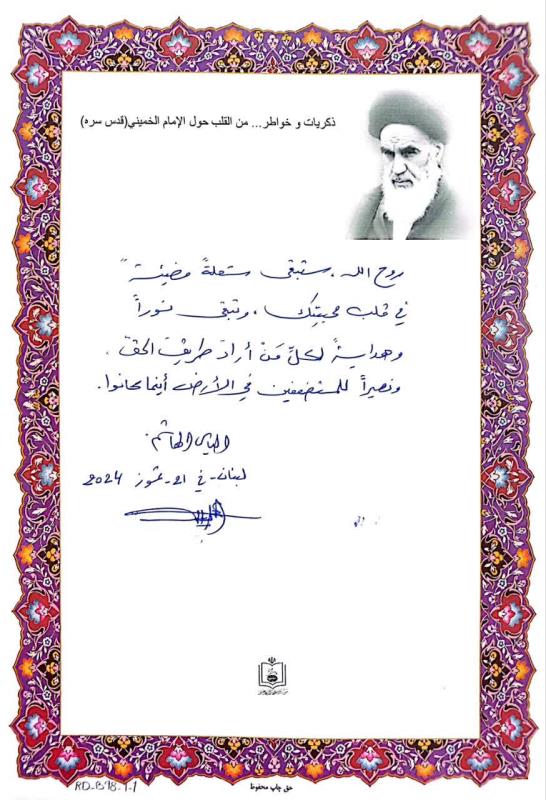 ذكريات و خواطر... من القلب حول الإمام الخميني(قدس سره)
روح الله، ستبقى شعلةً مضيئةً
في قلب محبّيك، وتبقى نوراً
وهدايةً لكلِّ مَنْ أرادَ طريقَ الحقّ.
ونصيراً للمستضعفين في الأرض أينما كانوا.
الياس الهاشم
لبنان - في 21 - تموز 2024
حق چاپ محفوظ
RD-B98-1-1